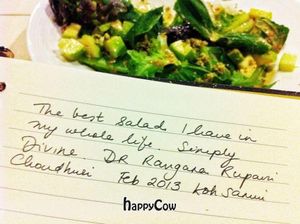 The best salad I have in
my whole life. Simply
Divine DR Rangana Rupavi
Choudhuri Feb 2013 Koh Samui
happyCow